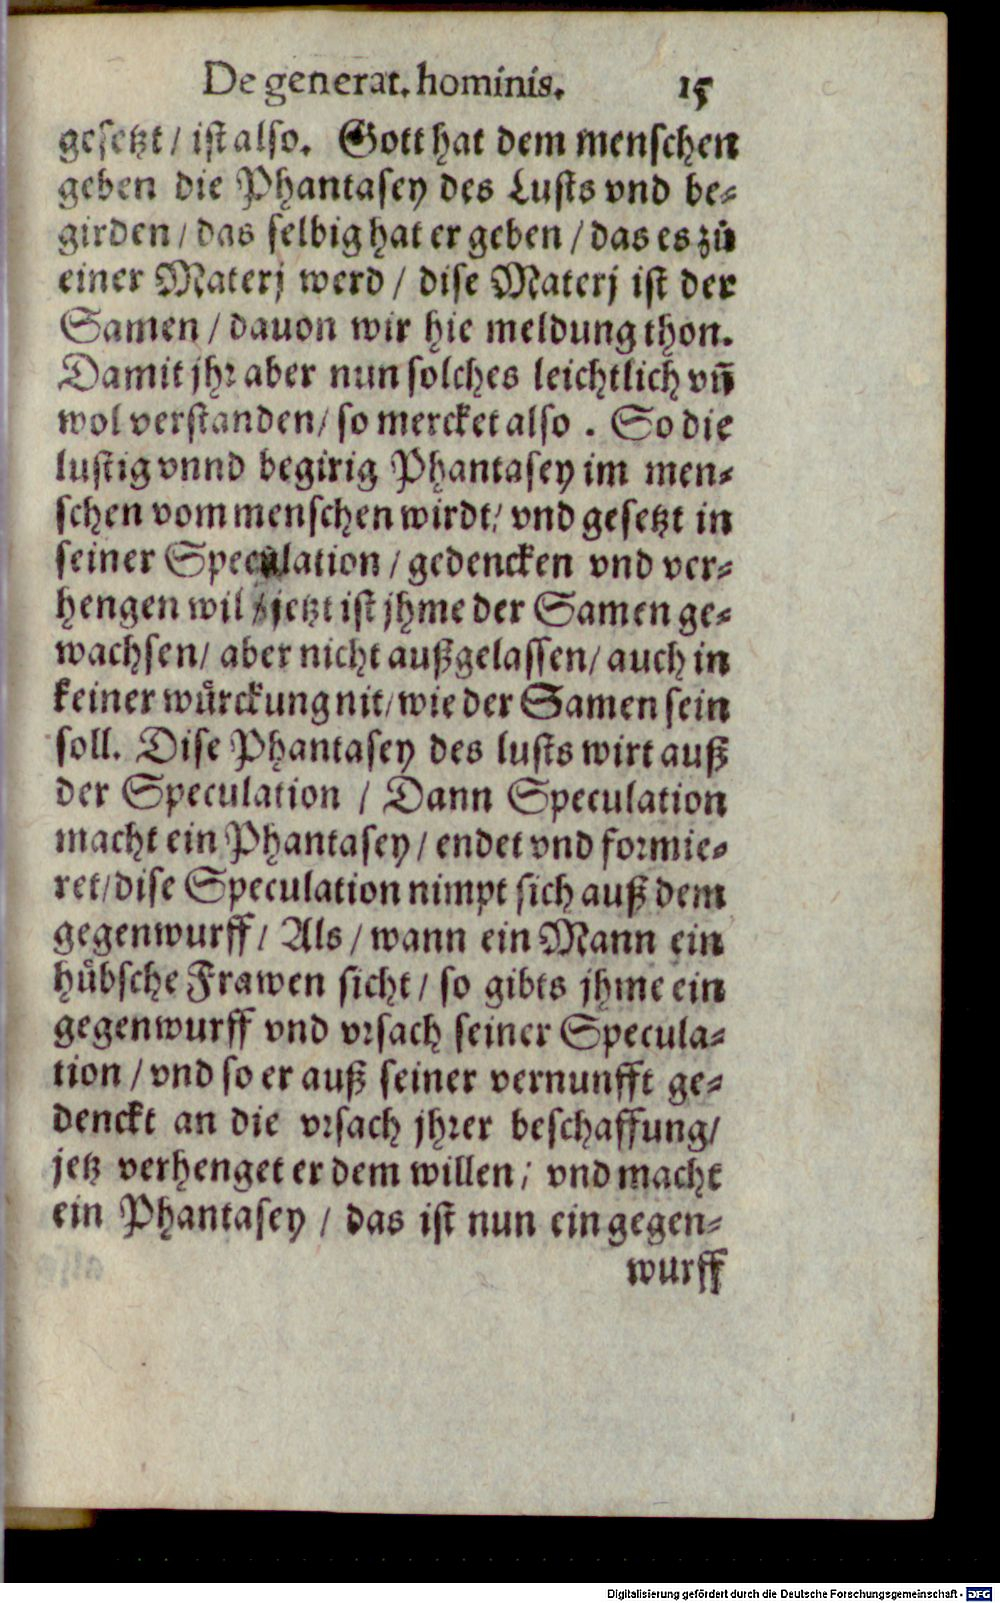 De generat. hominis. 15
gesetzt / ist also. Gott hat dem menschen
geben die Phantasey des Lusts vnd be-
girden / das selbig hat er geben / das es zů
einer Materj werd / dise Materj ist der
Samen / dauon wir hie meldung thon.
Damit jhr aber nun solches leichtlich vñ
wol verstanden / so mercket also . So die
lustig vnnd begirig Phantasey im men-
schen vom menschen wirdt / vnd gesetzt in
seiner Speculation / gedencken vnd ver-
hengen wil / jetzt ist jhme der Samen ge-
wachsen / aber nicht außgelassen / auch in
keiner wůrckung nit / wie der Samen sein
soll. Dise Phantasey des lusts wirt auß
der Speculation / Dann Speculation
macht ein Phantasey / endet vnd formie-
ret / dise Speculation nimpt sich auß dem
gegenwurff / Als / wann ein Mann ein
hůbsche Frawen sicht / so gibts jhme ein
gegenwurff vnd vrsach seiner Specula-
tion / vnd so er auß seiner vernunfft ge-
denckt an die vrsach jhrer beschaffung /
jetz verhenget er dem willen / vnd macht
ein Phantasey / das ist nun ein gegen-
wurff
Digitalisierung gefördert durch die Deutsche Forschungsgemeinschaft - DFG